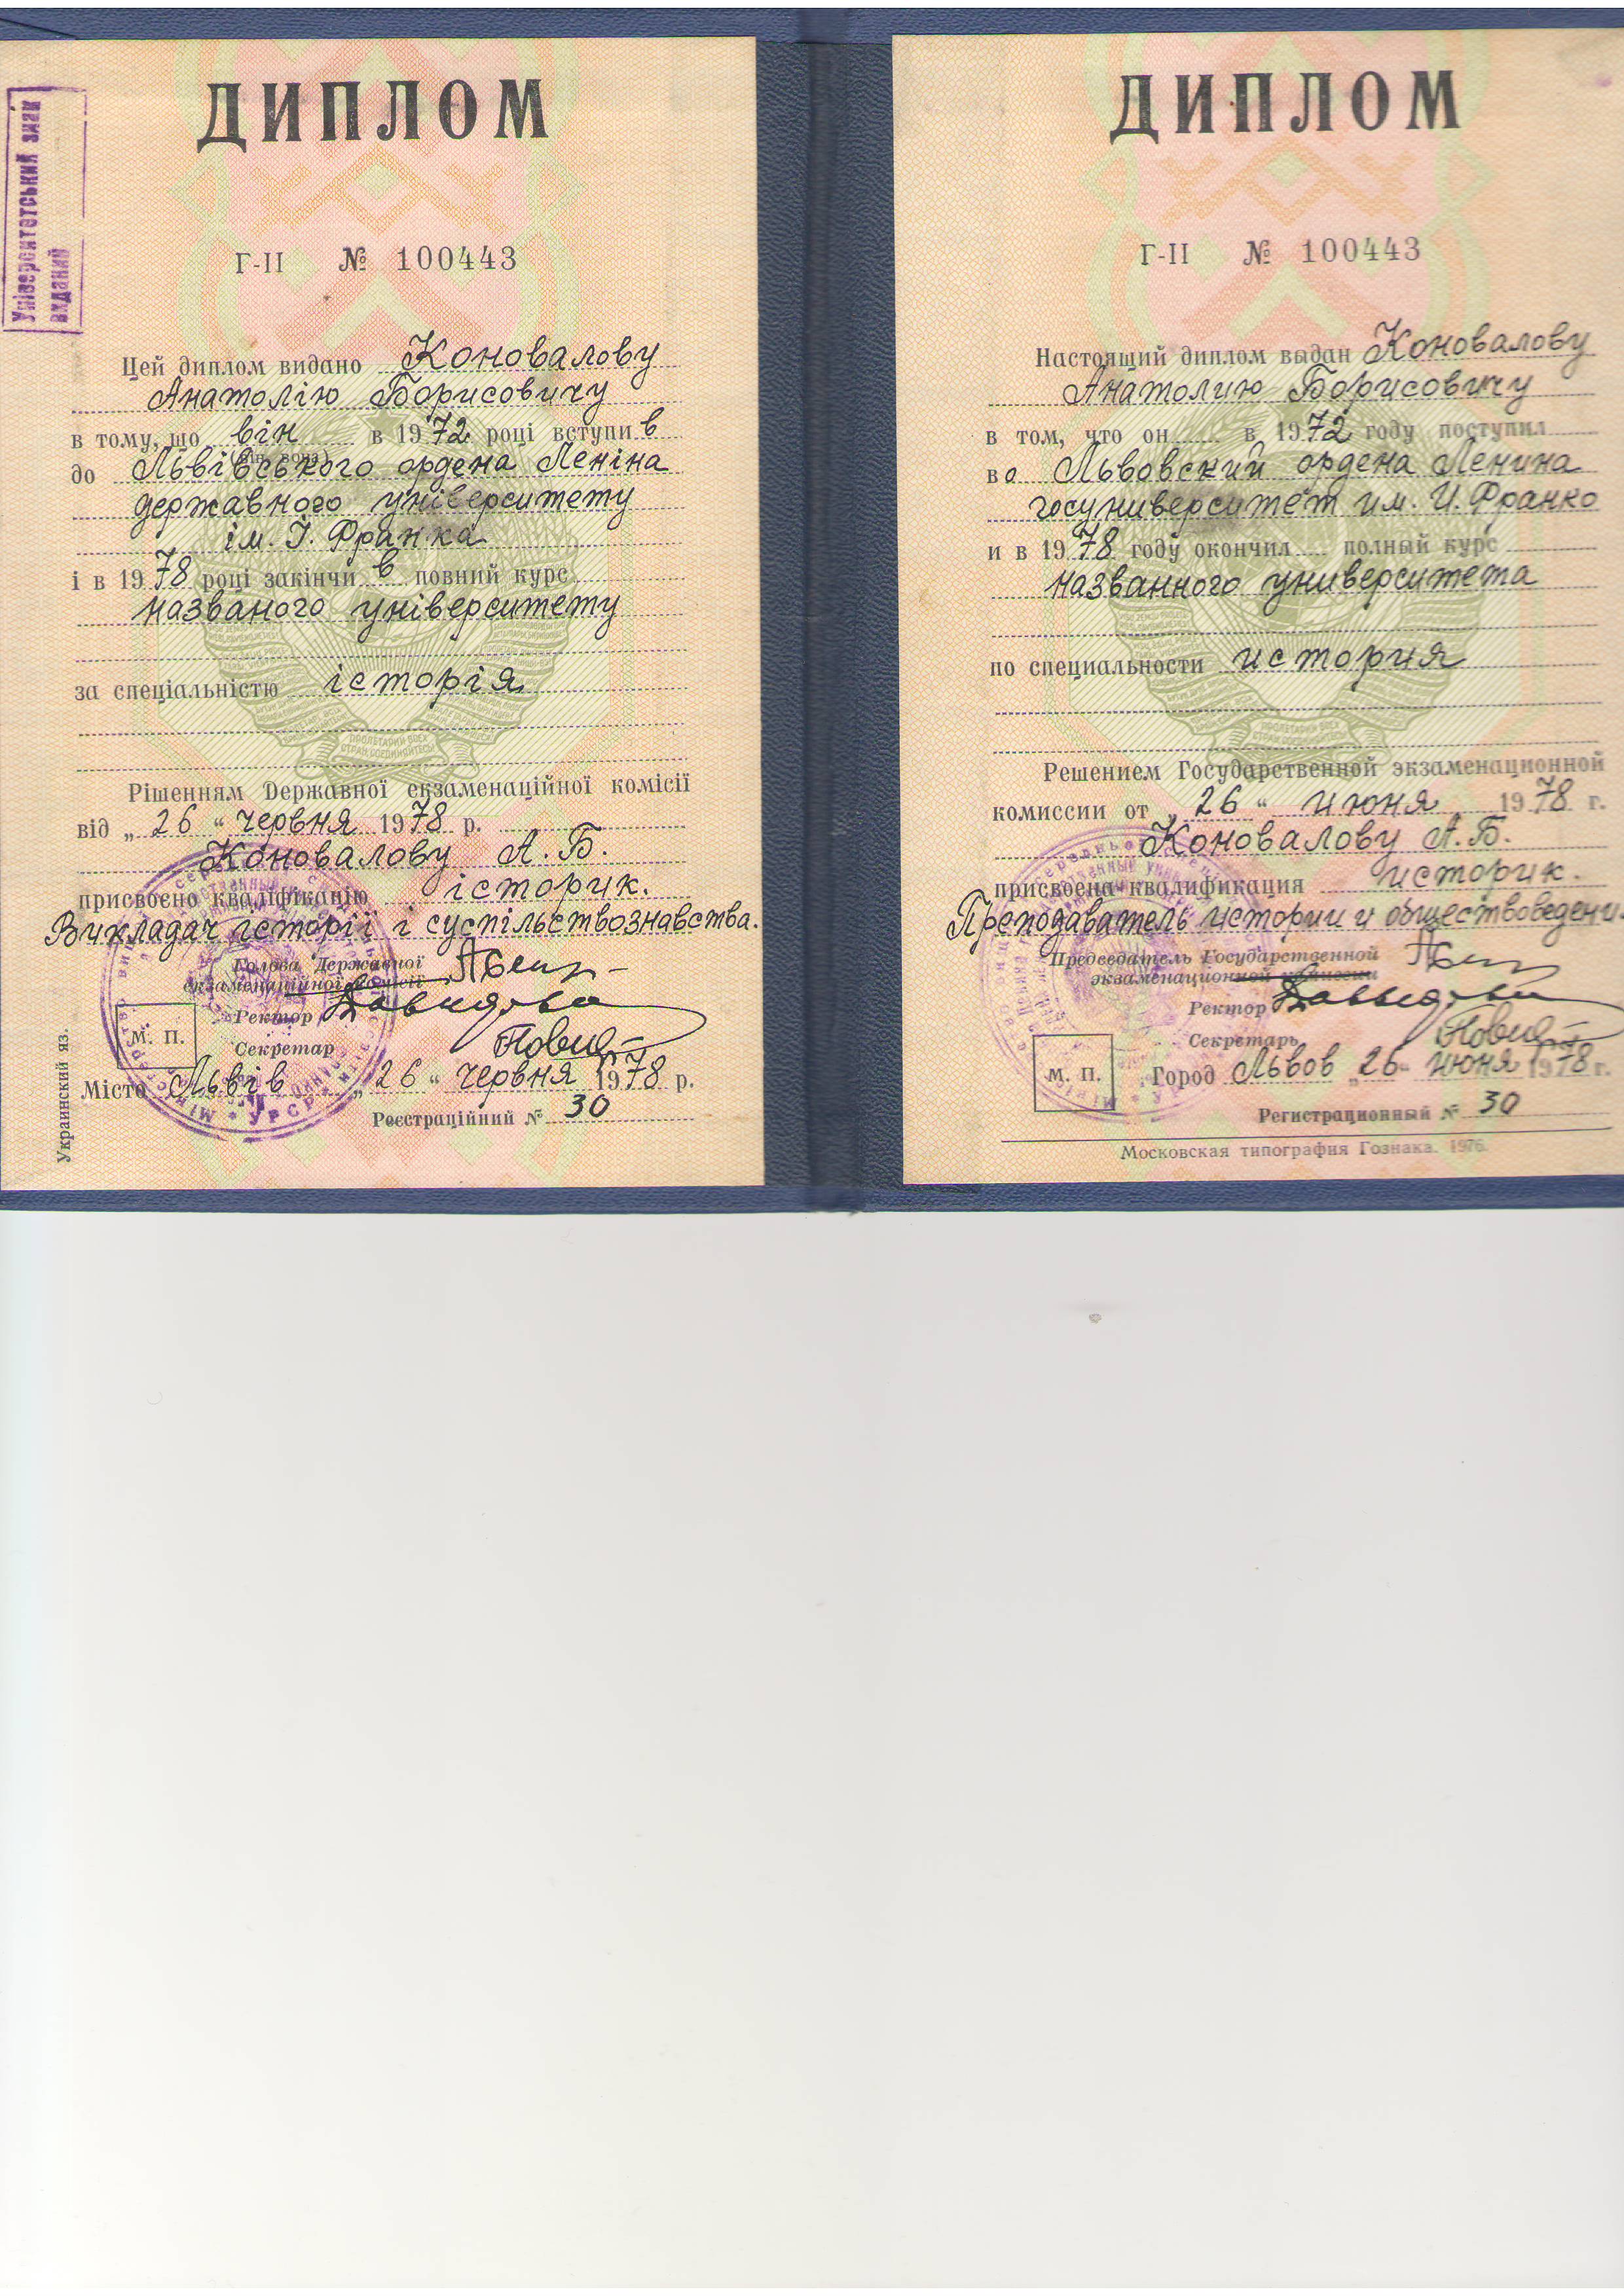 Університетський знак
виданий
ДИПЛОМ
Г-II № 100443
Цей диплом видано Коновалову
Анатолію Борисовичу
в тому, що він в 1972 році вступив
(він, вона)
до Львівського ордена Леніна
державного університету
ім. І. Франка
і в 1978 році закінчив повний курс
названого університету
за спеціальністю історія
ПРОЛЕТАРИИ ВСЕХ
СТРАН, СОЕДИНЯЙТЕСЬ!
Рішенням Державної екзаменаційної комісії
від „26“ червня 1978 р.
Коновалову А.Б.
присвоєно кваліфікацію історик.
Викладач історії і суспільствознавства.
Голова Державної
екзаменаційної комісії
Ректор
М. П.
Секретар
Місто Львів „26“ червня 1978 р.
Реєстраційний № 30
Украинский яз.
УРСР
ДИПЛОМ
Г-II № 100443
Настоящий диплом выдан Коновалову
Анатолию Борисовичу
в том, что он в 1972 году поступил
во Львовский ордена Ленина
госуниверситет им. И. Франко
и в 1978 году окончил полный курс
названного университета
по специальности история
ПРОЛЕТАРИИ ВСЕХ
СТРАН, СОЕДИНЯЙТЕСЬ!
Решением Государственной экзаменационной
комиссии от „26“ июня 1978 г.
Коновалову А.Б.
присвоена квалификация историк.
Преподаватель истории и обществоведени
Председатель Государственной
экзаменационной комиссии
Ректор
Секретарь
М. П.
Город Львов „26“ июня 1978 г.
Регистрационный № 30
Московская типография Гознака. 1976.